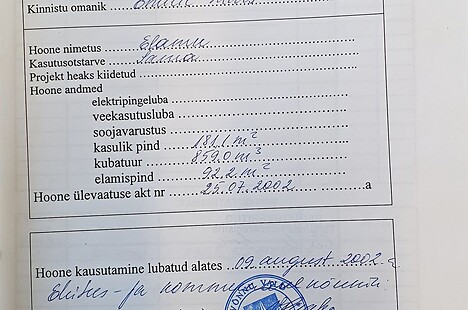 Kinnistu omanik
Hoone nimetus Elamu
Kasutusotstarve Sama
Projekt heaks kiidetud
Hoone andmed
elektripingeluba
veekasutusluba
soojavarustus
kasulik pind 181,1 m²
kubatuur 859,0 m³
elamispind 92,2 m²
Hoone ülevaatuse akt nr 25.07.2002 a
Hoone kausutamine lubatud alates 09 august 2002 a
Ehitus- ja